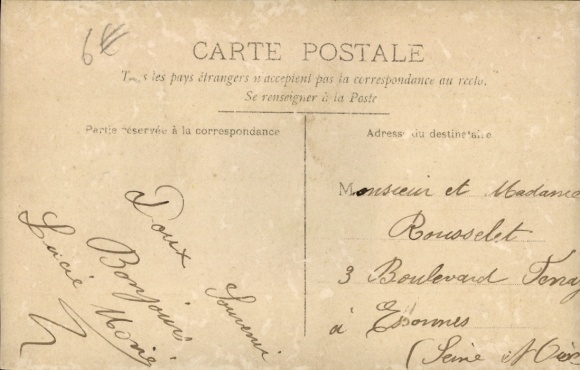 6
CARTE POSTALE
Tous les pays étrangers n'acceptent pas la correspondance au recto.
Se renseigner à la Poste
Partie réservée à la correspondance
Adresse du destinataire
Doux Souvenir
Bonjour
Lucie
Monsieur et Madame
Rousselet
3 Boulevard
à Essonnes
(Seine